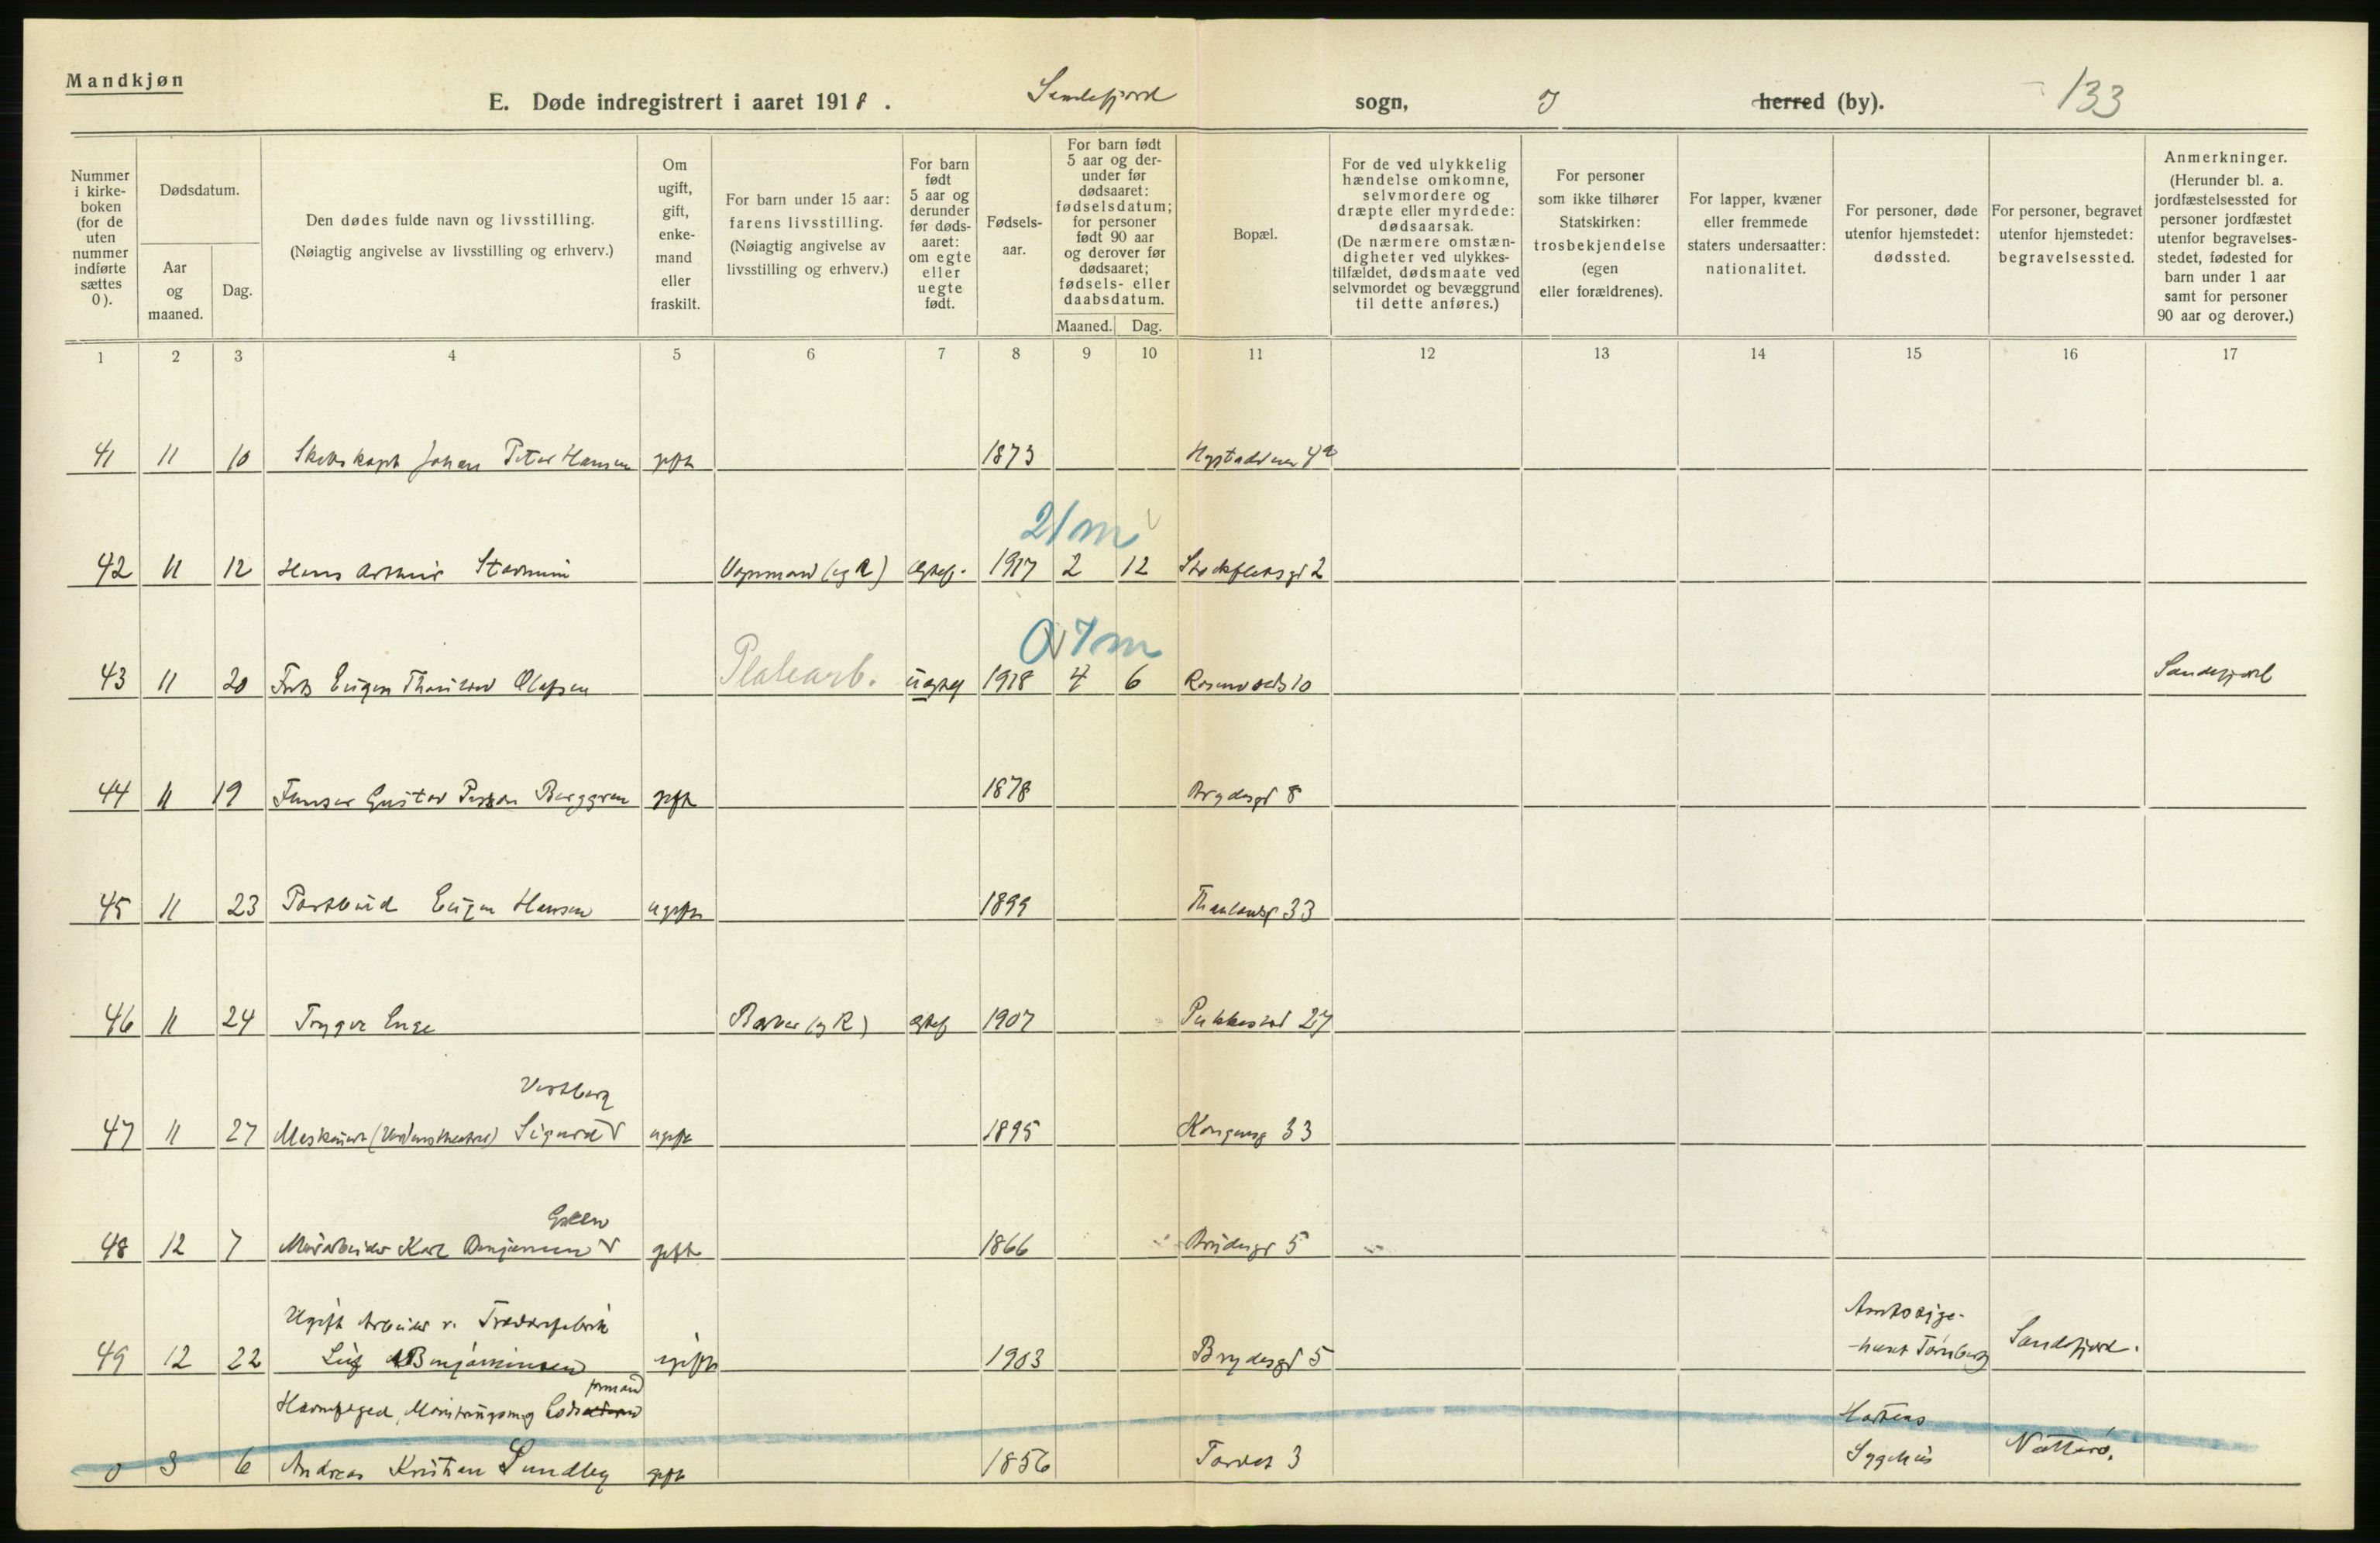 Mandkjøn
E. Døde indregistrert i aaret 1918. Sandefjord sogn, herred (by). 133
Nummer i kirke-boken (for de uten nummer indførte sættes 0).
Dødsdatum.
Aar og maaned.
Dag.
Den dødes fulde navn og livsstilling.
(Nøiagtig angivelse av livsstilling og erhverv.)
Om ugift, gift, enke-mand eller fraskilt.
For barn under 15 aar: farens livsstilling.
(Nøiagtig angivelse av livsstilling og erhverv.)
For barn født 5 aar og derunder før døds-aaret: om egte eller uegte født.
Fødsels-aar.
For barn født 5 aar og der-under før dødsaaret: fødselsdatum; for personer født 90 aar og derover før dødsaaret; fødsels- eller daabsdatum.
Maaned. Dag.
Bopæl.
For de ved ulykkelig hændelse omkomne, selvmordere og dræpte eller myrdede: dødsaarsak.
(De nærmere omstæn-digheter ved ulykkes-tilfældet, dødsmaate ved selvmordet og bevæggrund til dette anføres.)
For personer som ikke tilhører Statskirken: trosbekjendelse (egen eller forældrenes).
For lapper, kvæner eller fremmede staters undersaatter: nationalitet.
For personer, døde utenfor hjemstedet: dødssted.
For personer, begravet utenfor hjemstedet: begravelsessted.
Anmerkninger.
(Herunder bl. a. jordfæstelsessted for personer jordfæstet utenfor begravelses-stedet, fødested for barn under 1 aar samt for personer 90 aar og derover.)
1 2 3 4 5 6 7 8 9 10 11 12 13 14 15 16 17
41 11 10 Johan Peter Hansen gift 1873
21 m
42 11 12 Hans Arthur 1917 2 12 2
0 7 m
43 11 20 Eugen Olafsen Platearb. uegtef 1918 4 6 10 Sandefjord
44 11 19 Gustav Berggren gift 1878 Brydesgt 8
45 11 23 Postbud Eugen Hansen ugift 1899 33
46 11 24 Trygve Enge egtef 1907 27
Vestberg
47 11 27 Sigurd ugift 1895 Kongensg 33
48 12 7 Murarbeider Karl Benjaminsen gift 1866 Brydesgt 5
Ugift Arbeider v.
49 12 22 Leif Benjaminsen ugift 1903 Brydesgt 5 Tønsberg Sandefjord.
Havnefoged, formand
0 3 6 Andreas Kristian Lundby gift 1856 Torvet 3 Hortens Sygehus Nøtterø.